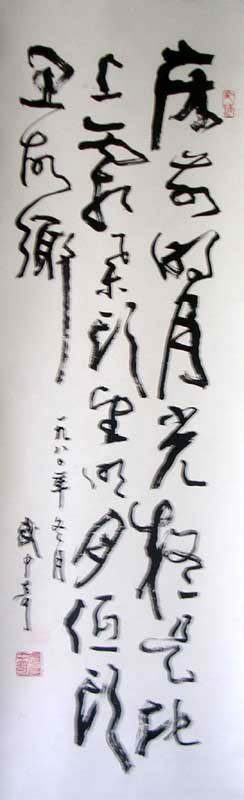 床前明月光疑是地
上霜舉頭望明月低頭
思故鄉
一九八〇年冬月
武中奇